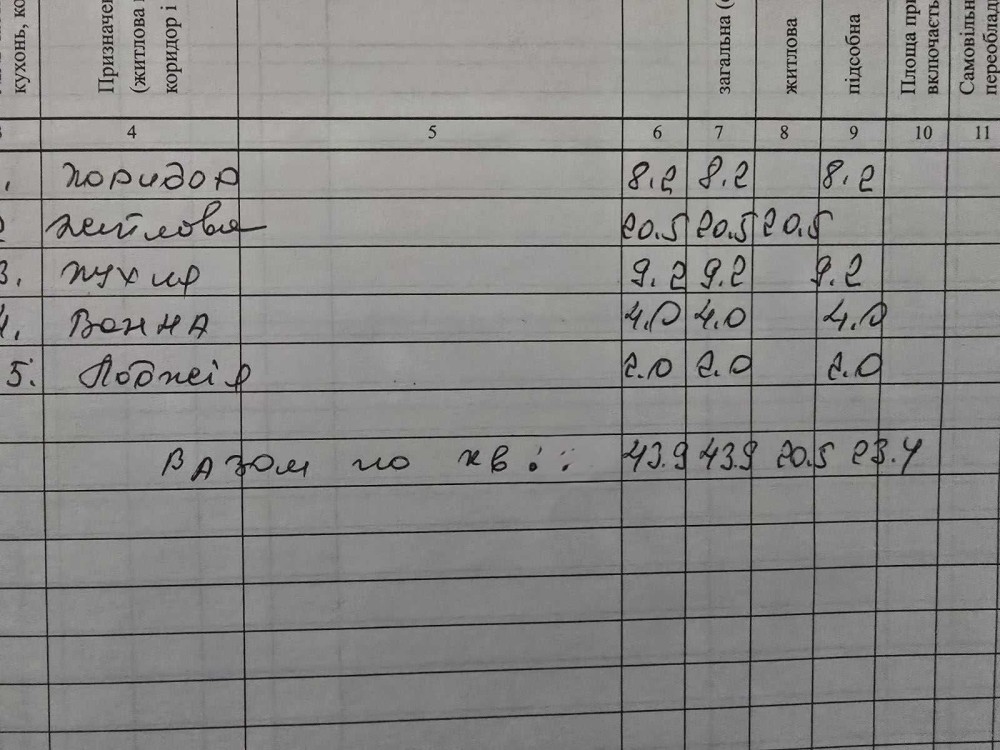 кухонь, ко
Призначе
(житлова
коридор і
загальна (
житлова
підсобна
Площа при
включаєть
Самовільн
переоблад
3 4 5 6 7 8 9 10 11
1. Коридор 8.2 8.2 8.2
2 житлова 20.5 20.5 20.5
3. Кухня 9.2 9.2 9.2
4. Ванна 4.0 4.0 4.0
5. Лоджія 2.0 2.0 2.0
Разом по кв: 43.9 43.9 20.5 23.4